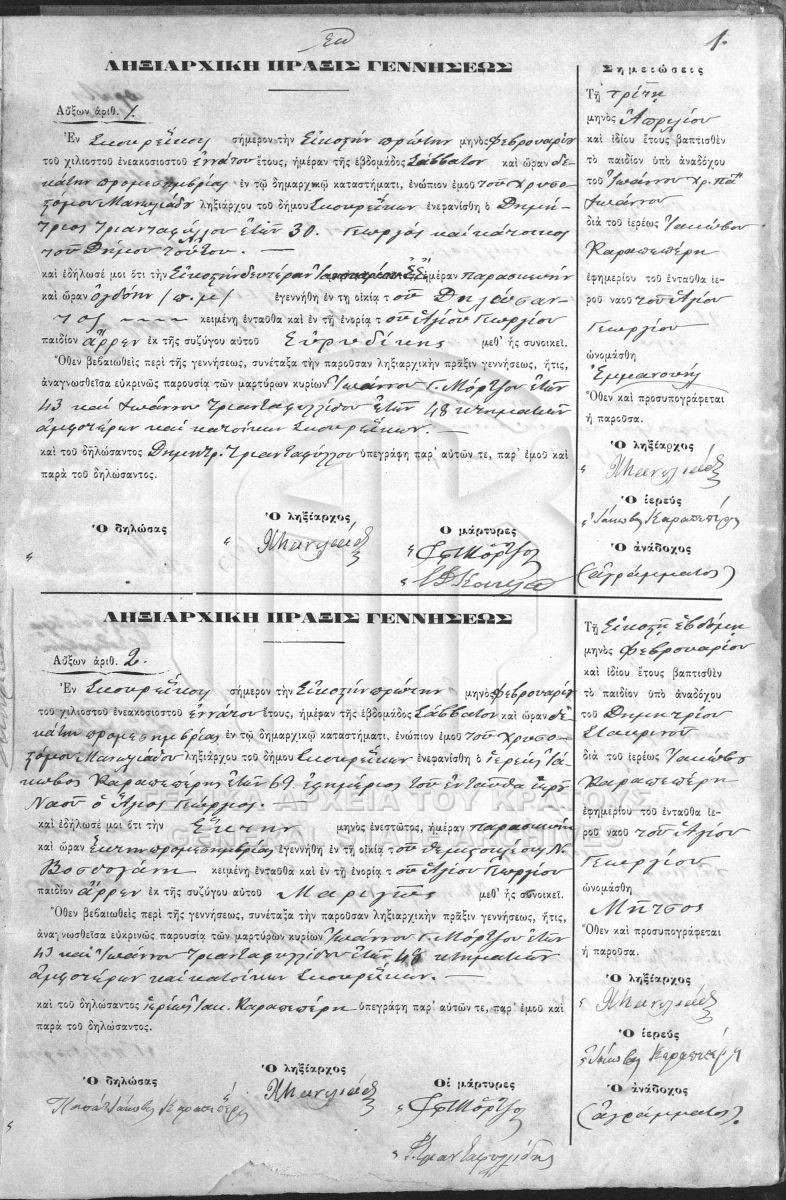 1.
ΛΗΞΙΑΡΧΙΚΗ ΠΡΑΞΙΣ ΓΕΝΝΗΣΕΩΣ
Αὔξων ἀριθ. 1.
Ἐν Σκουρέϊκου σήμερον τὴν Εἰκοστὴν πρώτην μηνὸς Φεβρουαρίου
τοῦ χιλιοστοῦ ἐνεακοσιοστοῦ ἐννάτου ἔτους, ἡμέραν τῆς ἑβδομάδος Σάββατον καὶ ὥραν δε-
κάτην προμεσημβρίας ἐν τῷ δημαρχικῷ καταστήματι, ἐνώπιον ἐμοῦ τοῦ Χρυσο-
στόμου Μανωλιάδου ληξιάρχου τοῦ δήμου Σκουρέϊκων ἐνεφανίσθη ὁ Δημή-
τριος Τριανταφύλλου ἐτῶν 30. Γεωργὸς καὶ κάτοικος
τοῦ Δήμου τούτου. —
καὶ ἐδήλωσέ μοι ὅτι τὴν Εἰκοστὴν δευτέραν ἡμέραν παρασκευὴν
καὶ ὥραν ὀγδόην (π.μ.) ἐγεννήθη ἐν τῃ οἰκίᾳ τοῦ Δηλώσαν-
τος κειμένῃ ἐνταῦθα καὶ ἐν τῇ ἐνορίᾳ τοῦ Ἁγίου Γεωργίου
παιδίον ἄρρεν ἐκ τῆς συζύγου αὐτοῦ Εὐρυδίκης μεθ' ἧς συνοικεῖ.
Ὅθεν βεβαιωθεὶς περὶ τῆς γεννήσεως, συνέταξα τὴν παροῦσαν ληξιαρχικὴν πρᾶξιν γεννήσεως, ἥτις,
ἀναγνωσθεῖσα εὐκρινῶς παρουσίᾳ τῶν μαρτύρων κυρίων Ἰωάννου Γ. Μόρτζου ἐτῶν
43 καὶ Ἰωάννου Τριανταφυλλίδου ἐτῶν 48 κτηματιῶν
ἀμφοτέρων καὶ κατοίκων Σκουρέϊκων. —
καὶ τοῦ δηλώσαντος Δημητρ. Τριανταφύλλου ὑπεγράφη παρ' αὐτῶν τε, παρ' ἐμοῦ καὶ
παρὰ τοῦ δηλώσαντος.
Ὁ δηλώσας
Ὁ ληξίαρχος
Ὁ μάρτυρες
Χ Μανωλιάδης
Σημειώσεις
Τῇ τρίτῃ
μηνὸς Ἀπριλίου
καὶ ἰδίου ἔτους βαπτισθὲν
τὸ παιδίον ὑπὸ ἀναδόχου
τοῦ Ἰωάννου Χρ. πᾶ
Ἰωάννου
διὰ τοῦ ἱερέως Ἰακώβου
Καραπεπέρη
ἐφημερίου τοῦ ἐνταῦθα ἱε-
ροῦ ναοῦ τοῦ Ἁγίου
Γεωργίου
ὠνομάσθη
Ἐμμανουὴλ
Ὅθεν καὶ προσυπογράφεται
ἡ παροῦσα.
Ὁ ληξίαρχος
Χ Μανωλιάδης
Ὁ ἱερεὺς
Ἰάκωβος Καραπεπέρης
Ὁ ἀνάδοχος
(ἀγράμματος)
ΛΗΞΙΑΡΧΙΚΗ ΠΡΑΞΙΣ ΓΕΝΝΗΣΕΩΣ
Αὔξων ἀριθ. 2.
Ἐν Σκουρέϊκου σήμερον τὴν Εἰκοστὴν πρώτην μηνὸς Φεβρουαρίου
τοῦ χιλιοστοῦ ἐνεακοσιοστοῦ ἐννάτου ἔτους, ἡμέραν τῆς ἑβδομάδος Σάββατον καὶ ὥραν δε-
κάτην προμεσημβρίας ἐν τῷ δημαρχικῷ καταστήματι, ἐνώπιον ἐμοῦ τοῦ Χρυσο-
στόμου Μανωλιάδου ληξιάρχου τοῦ δήμου Σκουρέϊκων ἐνεφανίσθη ὁ ἱερεὺς Ἰά-
κωβος Καραπεπέρης ἐτῶν 69. ἐφημέριος τοῦ ἐνταῦθα ἱεροῦ
Ναοῦ ὁ Ἅγιος Γεώργιος. —
καὶ ἐδήλωσέ μοι ὅτι τὴν Ἕκτην μηνὸς ἐνεστῶτος, ἡμέραν παρασκευὴν
καὶ ὥραν Ἕκτην προμεσημβρίας ἐγεννήθη ἐν τῇ οἰκίᾳ τοῦ Θεμιστοκλέους Ν.
κειμένῃ ἐνταῦθα καὶ ἐν τῇ ἐνορίᾳ τοῦ Ἁγίου Γεωργίου
παιδίον ἄρρεν ἐκ τῆς συζύγου αὐτοῦ Μαριγῶς μεθ' ἧς συνοικεῖ.
Ὅθεν βεβαιωθεὶς περὶ τῆς γεννήσεως, συνέταξα τὴν παροῦσαν ληξιαρχικὴν πρᾶξιν γεννήσεως, ἥτις,
ἀναγνωσθεῖσα εὐκρινῶς παρουσίᾳ τῶν μαρτύρων κυρίων Ἰωάννου Γ. Μόρτζου ἐτῶν
43 καὶ Ἰωάννου Τριανταφυλλίδου ἐτῶν 48 κτηματιῶν
ἀμφοτέρων καὶ κατοίκων Σκουρέϊκων. —
καὶ τοῦ δηλώσαντος ἱερέως Ἰακ. Καραπεπέρη ὑπεγράφη παρ' αὐτῶν τε, παρ' ἐμοῦ καὶ
παρὰ τοῦ δηλώσαντος.
Ὁ δηλώσας
Ὁ ληξίαρχος
Οἱ μάρτυρες
Χ Μανωλιάδης
Τριανταφυλλίδης
Τῇ Εἰκοστῇ ἑβδόμῃ
μηνὸς Φεβρουαρίου
καὶ ἰδίου ἔτους βαπτισθὲν
τὸ παιδίον ὑπὸ ἀναδόχου
τοῦ Δημητρίου
Σταυρινοῦ
διὰ τοῦ ἱερέως Ἰακώβου
Καραπεπέρη
ἐφημερίου τοῦ ἐνταῦθα ἱε-
ροῦ ναοῦ τοῦ Ἁγίου
Γεωργίου
ὠνομάσθη
Μῆτσος
Ὅθεν καὶ προσυπογράφεται
ἡ παροῦσα.
Ὁ ληξίαρχος
Χ Μανωλιάδης
Ὁ ἱερεὺς
Ἰάκωβος Καραπεπέρης
Ὁ ἀνάδοχος
(ἀγράμματος).
ΑΡΧΕΙΑ ΤΟΥ ΚΡΑΤΟΥΣ